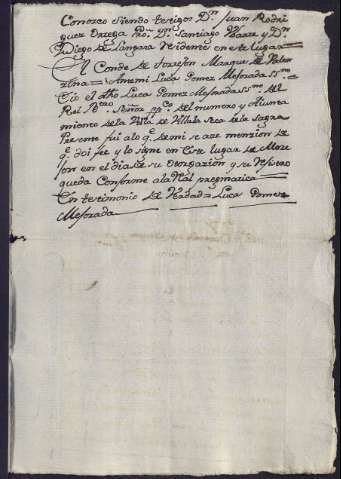 Conozco siendo testigos Dn. Juan Rodri
guez Ortega Pro. Dn. Santiago y Dn.
Diego de Langara residente en este lugar
El Conde de Torrejon Marques de Valen
zina = Antemi Luca Gomez Mesorada ss.no =
Yo el dho Luca Gomez Mesorada ss.no del
Rei Nro Señor pp.co del numero y Aiunta
miento de la Villa de Villa Seca de la Sagra
Presente fui a lo q.e de mi se aze menzion de
q.e doi fee y lo signe en este lugar de Moze
jon en el dia de su otorgazion y su
queda Conforme a la Rl. pragmatica
En testimonio de Verdad = Luca Gomez
Mesorada